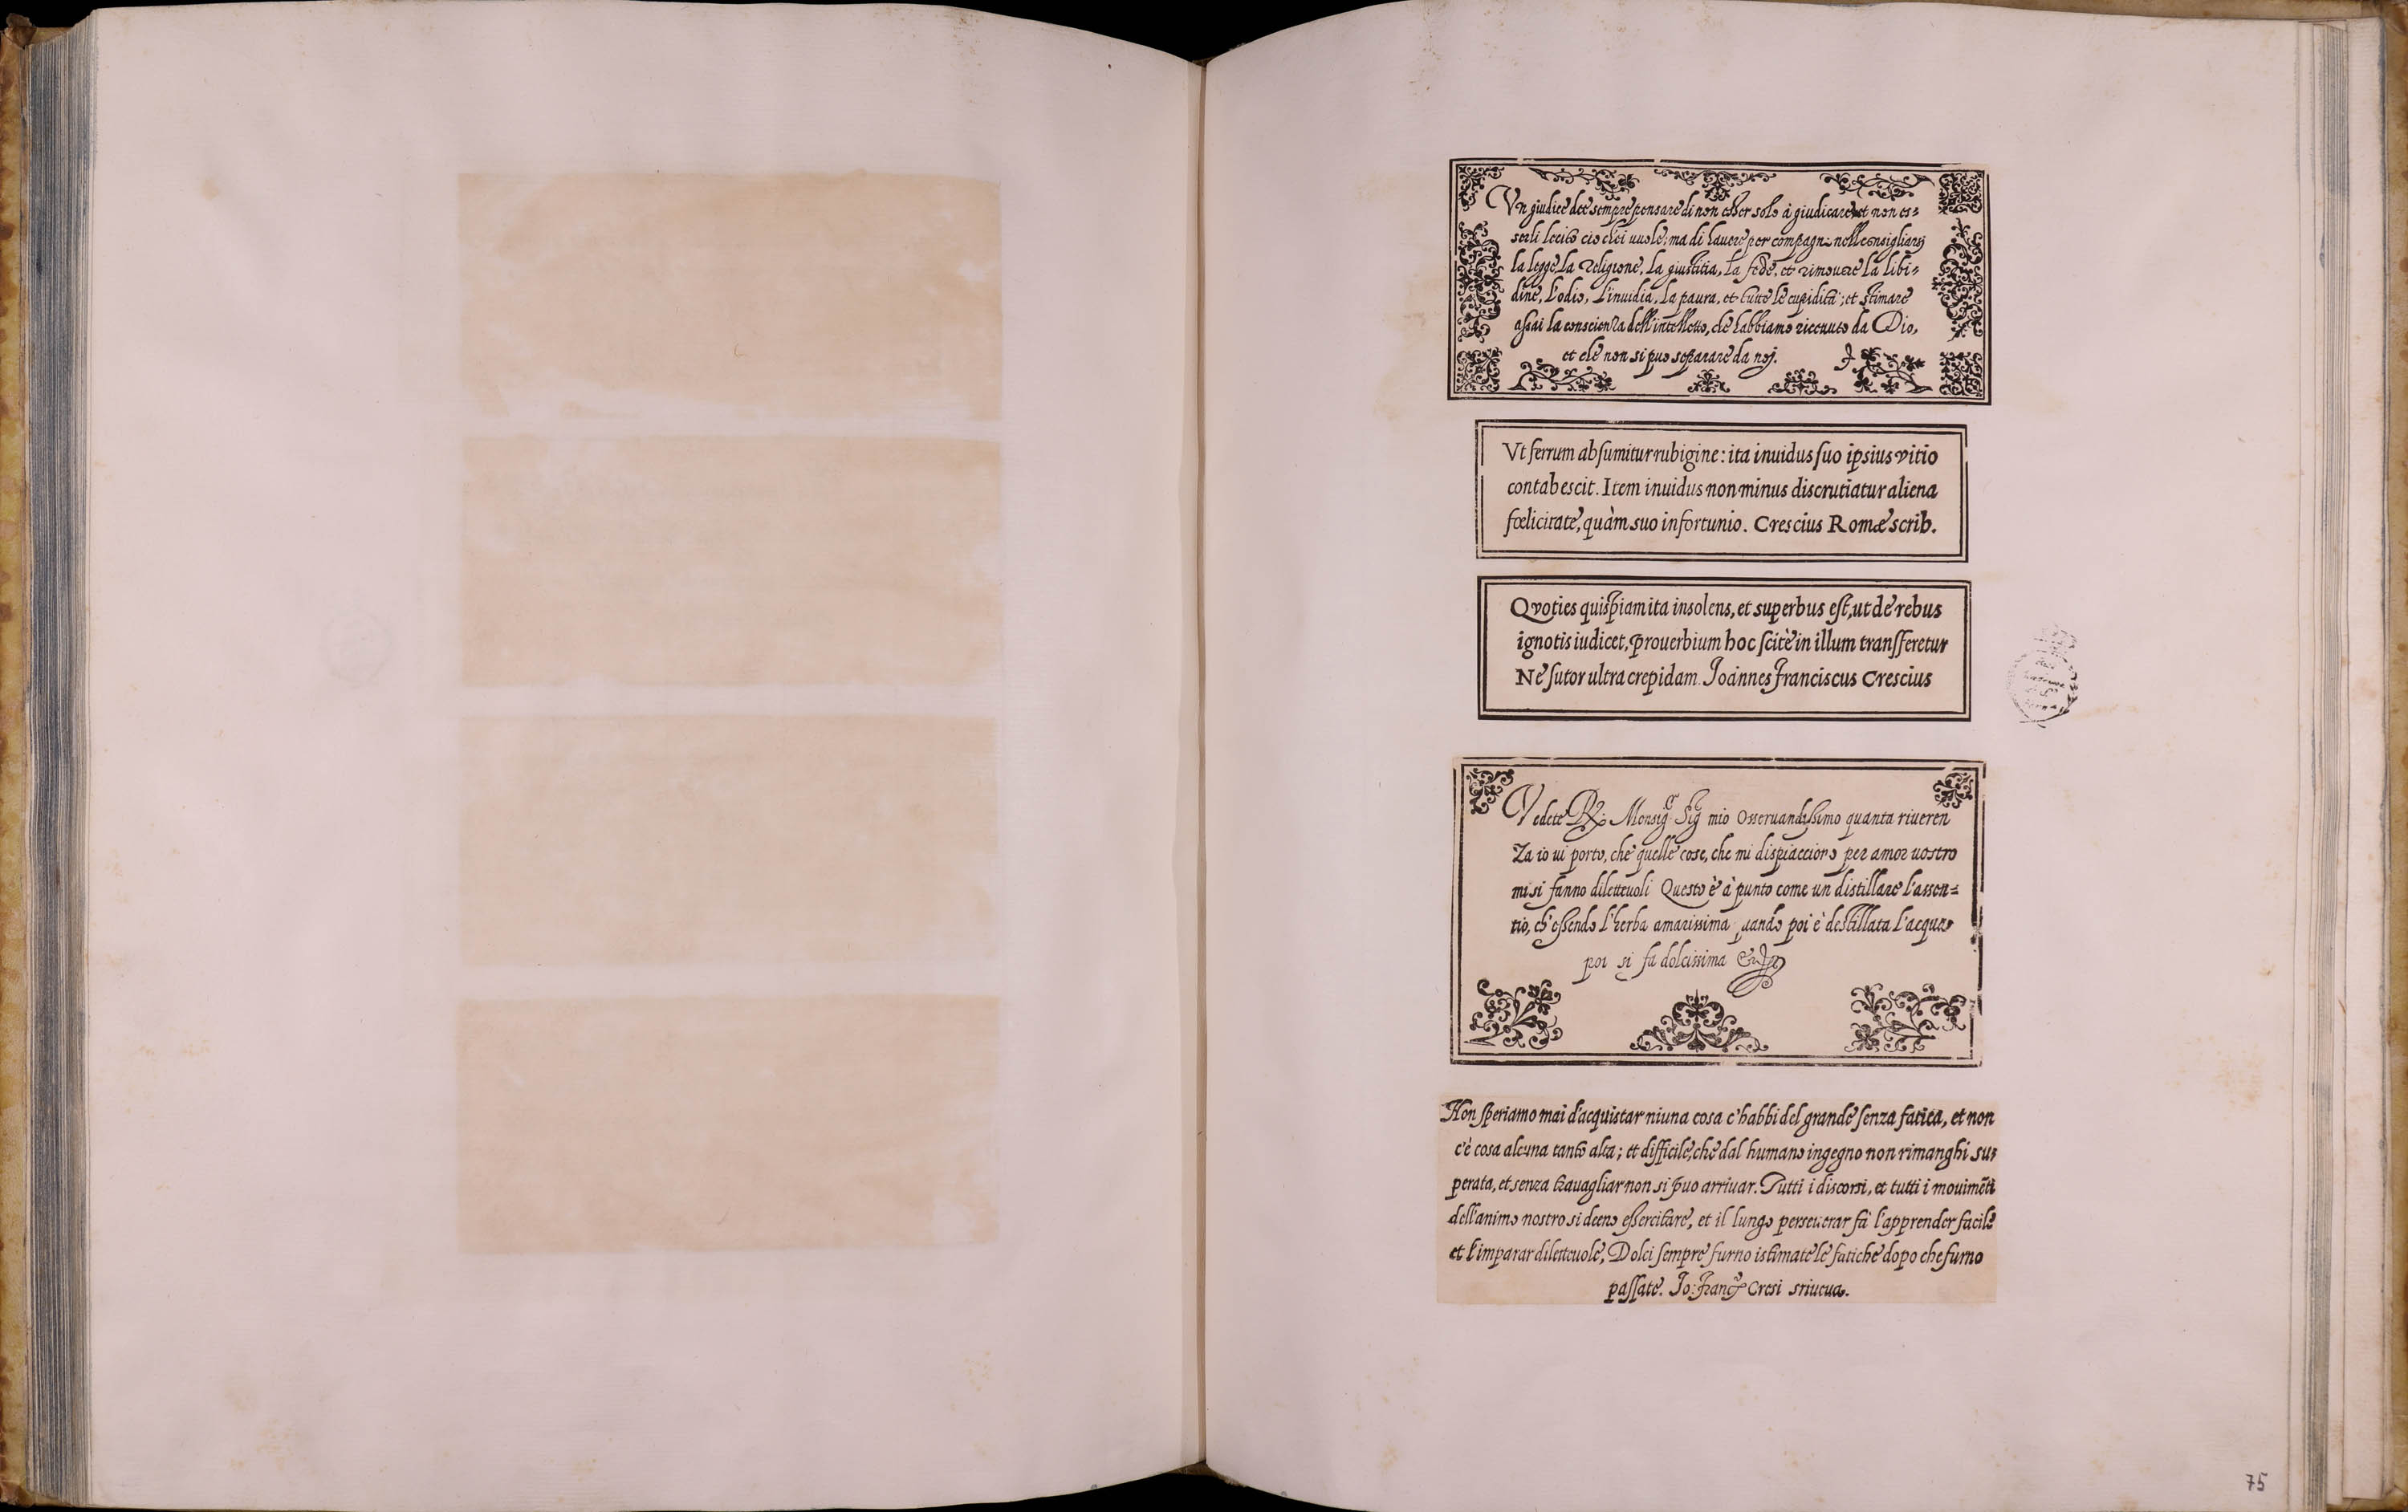 Vn giudice dee sempre pensare di non esser solo à giudicare, et non es=
serli lecito cio ch'ei uuole; ma di hauere per compagni nell consigliarsi
la legge, la religione, la giustitia, la fede, et rimouere la libi=
dine, l'odio, l'inuidia, la paura, et tutte le cupidità; et stimare
assai la conscienza dell'intelletto, che habbiamo riceuuto da Dio,
et che non si puo separare da noj.
Vt ferrum absumitur rubigine: ita inuidus suo ipsius vitio
contabescit. Item inuidus non minus discrutiatur aliena
fœlicitate, quàm suo infortunio. Crescius Romæ scrib.
Qvoties quispiam ita insolens, et superbus est, ut de rebus
ignotis iudicet, prouerbium hoc scitè in illum transferetur
Ne sutor ultra crepidam. Joannes Franciscus Crescius
Vedete Monsig. Sig mio Osseruandissimo quanta riueren
za io ui porto, che quelle cose, che mi dispiacciono per amor uostro
mi si fanno diletteuoli Questo è à punto come un distillare l'assen=
tio, ch'essendo l'herba amarissima quando poi è destillata l'acqua
poi si fa dolcissima
Non speriamo mai d'acquistar niuna cosa c'habbi del grande senza fatica, et non
c'è cosa alcuna tanto alta; et difficile, che dal humano ingegno non rimanghi su=
perata, et senza trauagliar non si puo arriuar. Tutti i discorsi, et tutti i mouimēti
dell'animo nostro si deeno essercitare, et il lungo perseuerar fa l'apprender facile
et l'imparar diletteuole, Dolci sempre furno istimate le fatiche dopo che furno
passate. Jo: Franc.º Cresi sriueua.
75